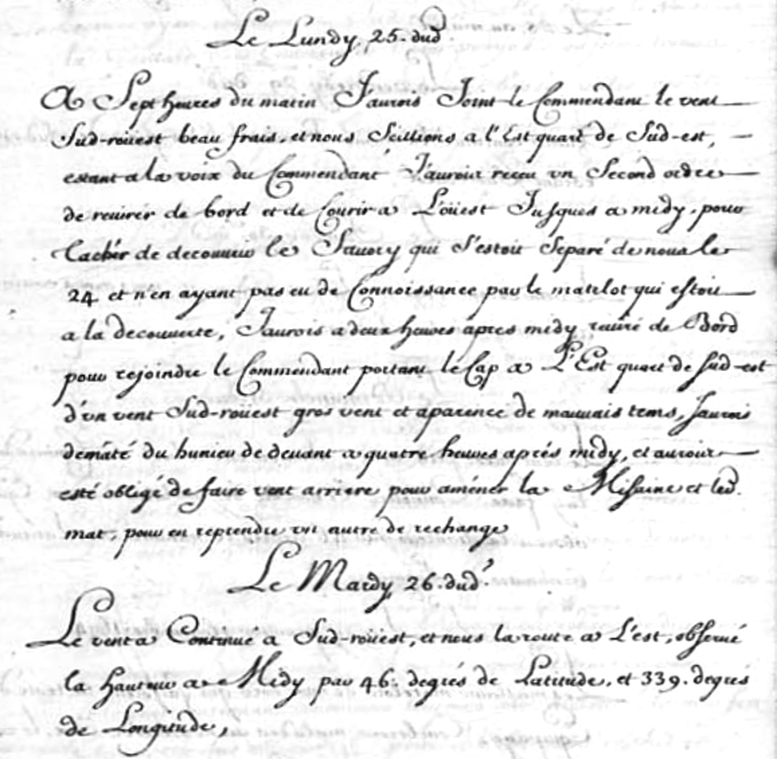 Le Lundy 25. dud.
A Sept heures du matin Jaurois Joint le Commendant le vent
Sud-roüest beau frais, et nous Scillions a l'Est quart de Sud-est,
estant a la voix du Commendant Jaurois receu vn Second ordre
de reuirér de bord et de Courir a L'oüest Jusques a midy, pour
tachér de decouurir le Sauory qui s'estoit Separé de nous le
24. et n'en ayant pas eu de Connoissance par le matelot qui estoit
a la decouuerte, Jaurois a deux heures apres midy reuiré de Bord
pour rejoindre le Commendant portant le Cap a L'Est quart de sud-est
d'vn vent Sud-roüest gros vent et aparence de mauuais tems, Jaurois
demâté du hunier de deuant a quatre heures aprés midy, et aurois
esté obligé de faire vent arriere pour aménér la Misaine et led.
mat, pour en reprendre vn autre de rechange
Le Mardy 26. dud.
Le vent a Continué a Sud-roüest, et nous la route a L'est, obserué
la hauteur a Midy par 46. degrés de Latitude, et 339. degrés
de Longitude,